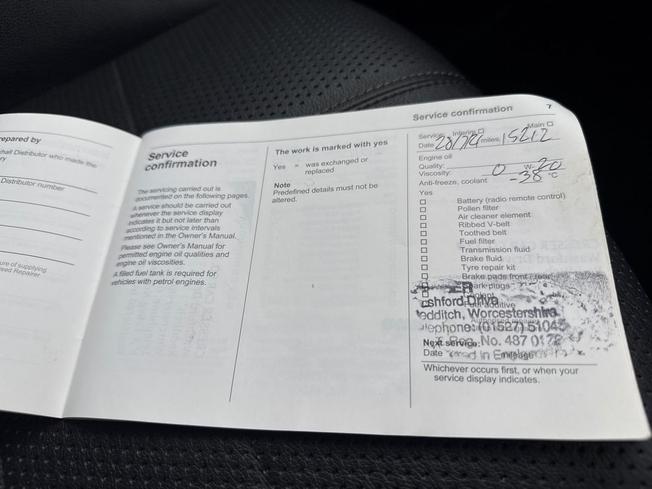 epared by
hall Distributor who made the
ry
Distributor number
ure of supplying
ised Repairer
Service
confirmation
The servicing carried out is
documented on the following pages.
A service should be carried out
whenever the service display
indicates it but not later than
according to service intervals
mentioned in the Owner's Manual.
Please see Owner's Manual for
permitted engine oil qualities and
engine oil viscosities.
A filled fuel tank is required for
vehicles with petrol engines.
The work is marked with yes
Yes = was exchanged or
replaced
Note
Predefined details must not be
altered.
Service confirmation 7
Service Interim Main
Date miles 15212
Engine oil
Quality:
Viscosity: 0 W- 20
Anti-freeze, coolant -38 °C
Yes
Battery (radio remote control)
Pollen filter
Air cleaner element
Ribbed V-belt
Toothed belt
Fuel filter
Transmission fluid
Brake fluid
Tyre repair kit
Brake pads front / rear
Spark plugs
ER
shford Drive
edditch, Worcestershire
elephone: (01527) 51045
Reg. No. 487 0172
Next service:
Date mileage
Whichever occurs first, or when your
service display indicates.